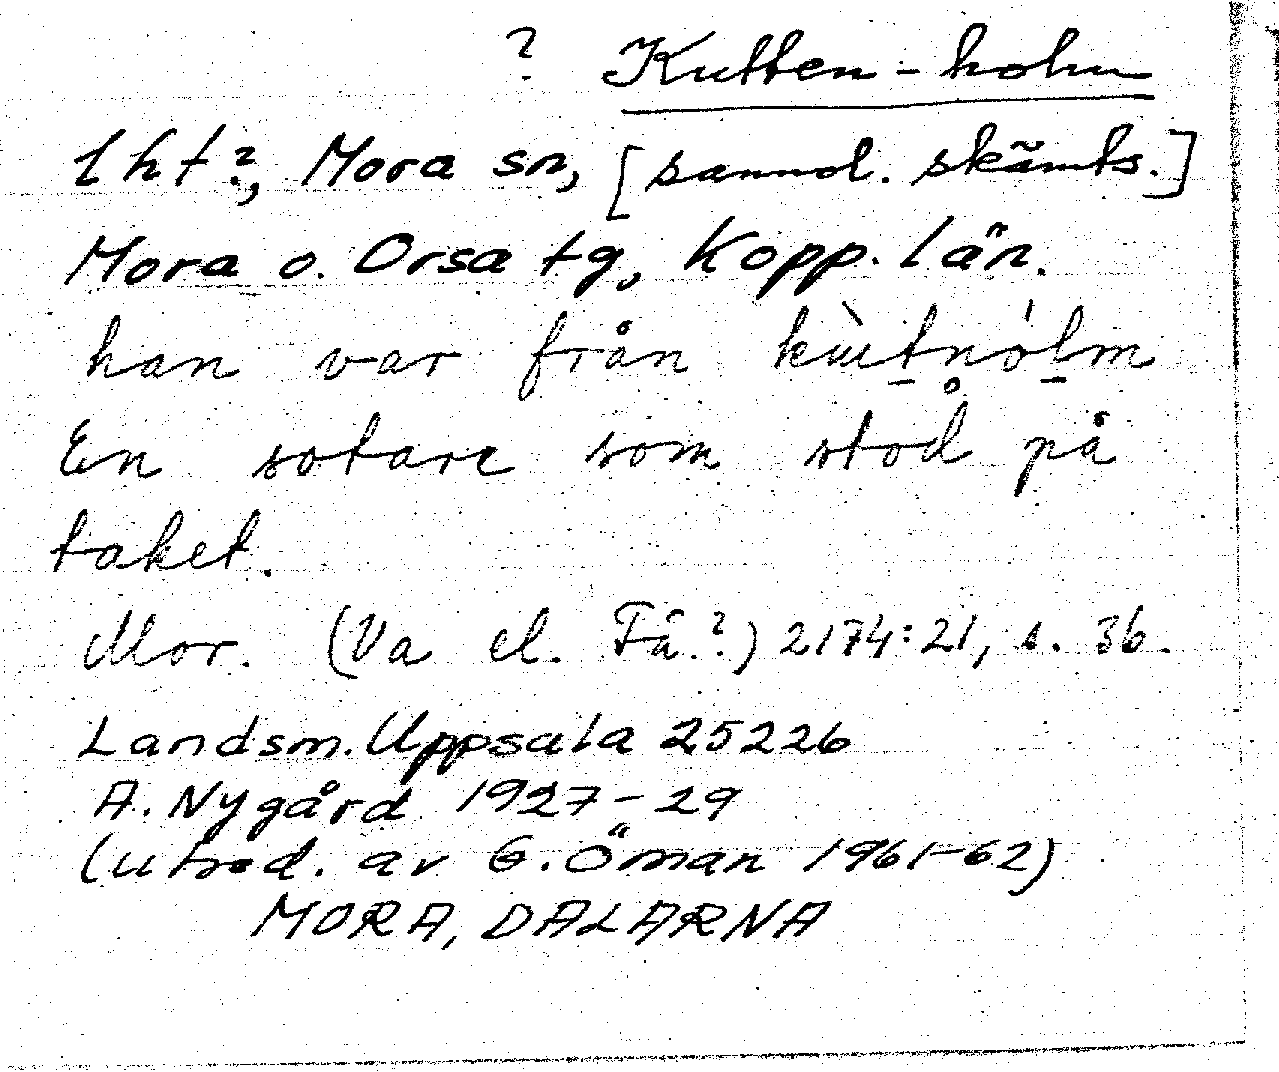 ? Kutten-holm
lht?, Mora sn, [sannol. skämts.]
Mora o. Orsa tg, Kopp. län.
han var från kùtnólm
En sotare som stod på
taket.
Mor. (Va el. Få?) 2174:21, s. 36.
Landsm. Uppsala 25226
A. Nygård 1927-29
(utred. av G. Öman 1961-62)
MORA, DALARNA